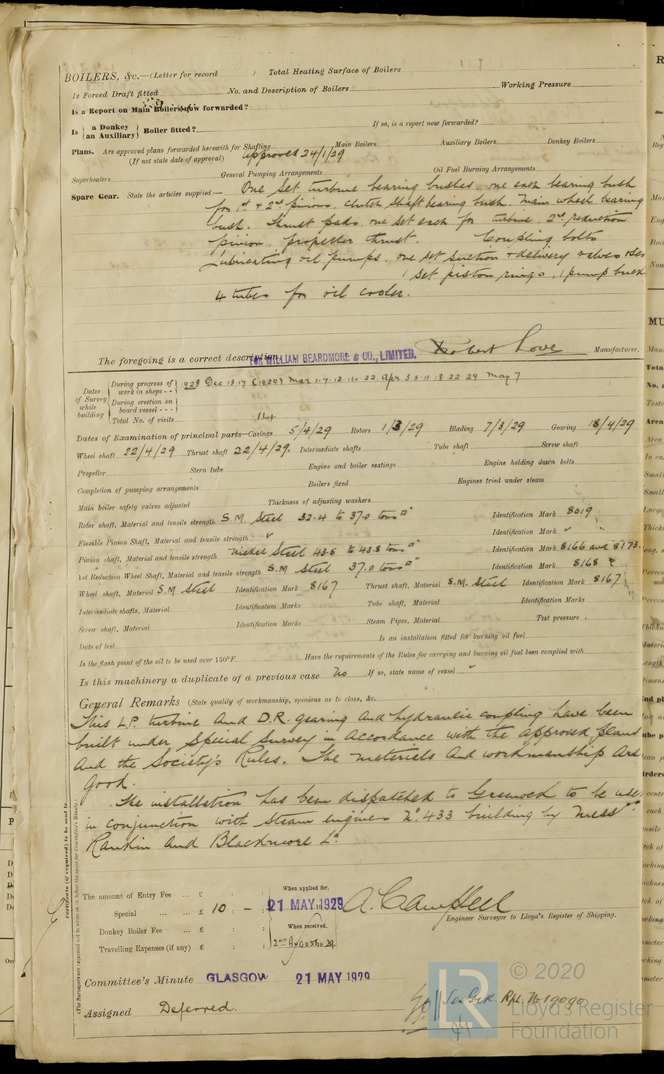 BOILERS, &c.—(Letter for record ) Total Heating Surface of Boilers
Is Forced Draft fitted No. and Description of Boilers Working Pressure
Is a Report on Main Boilers now forwarded?
Is { a Donkey / an Auxiliary } Boiler fitted? If so, is a report now forwarded?
Plans. Are approved plans forwarded herewith for Shafting approved 24/1/29 Main Boilers Auxiliary Boilers Donkey Boilers
(If not state date of approval)
Superheaters General Pumping Arrangements Oil Fuel Burning Arrangements
Spare Gear. State the articles supplied:— One set turbine bearing bushes, one each bearing bush
for 1st & 2nd pinions, clutch shaft bearing bush. Main wheel bearing
bush. Thrust pads one set each for turbine, 2nd reduction
pinion, propeller thrust. Coupling bolts
Lubricating oil pumps. one set suction & delivery valves
1 set piston rings, 1 pump bush
4 tubes for oil cooler.
The foregoing is a correct description,
WILLIAM BEARDMORE & CO., LIMITED. Robert Love Manufacturer.
Dates of Survey while building
During progress of work in shops - - 1928 Dec 13.17 (1929) Mar 1.7.12.14.22 Apr 3.5.11.18.22.29 May 7
During erection on board vessel - - -
Total No. of visits 14
Dates of Examination of principal parts—Casings 5/4/29 Rotors 1/3/29 Blading 7/3/29 Gearing 18/4/29
Wheel shaft 22/4/29 Thrust shaft 22/4/29. Intermediate shafts Tube shaft Screw shaft
Propeller Stern tube Engine and boiler seatings Engine holding down bolts
Completion of pumping arrangements Boilers fixed Engines tried under steam
Main boiler safety valves adjusted Thickness of adjusting washers
Rotor shaft, Material and tensile strength S.M. Steel 32.4 to 37.0 tons □" Identification Mark 8019
Flexible Pinion Shaft, Material and tensile strength " Identification Mark "
Pinion shaft, Material and tensile strength Nickel Steel 43.5 to 43.8 tons □" Identification Mark 8166 and 8173.
1st Reduction Wheel Shaft, Material and tensile strength S.M Steel 37.0 tons □" Identification Mark 8168
Wheel shaft, Material S.M Steel Identification Mark 8167 Thrust shaft, Material S.M. Steel Identification Mark 8167
Intermediate shafts, Material Identification Marks Tube shaft, Material Identification Marks
Screw shaft, Material Identification Marks Steam Pipes, Material Test pressure
Date of test Is an installation fitted for burning oil fuel
Is the flash point of the oil to be used over 150°F. Have the requirements of the Rules for carrying and burning oil fuel been complied with
Is this machinery a duplicate of a previous case No If so, state name of vessel "
General Remarks (State quality of workmanship, opinions as to class, &c.
This L.P. turbine and D.R. gearing and hydraulic coupling have been
built under Special Survey in accordance with the approved plans
and the Society's Rules. The materials and workmanship are
good.
The installation has been dispatched to Greenock to be used
in conjunction with steam engines No. 433 building by Mess
Rankin and Blackmore Ld
The amount of Entry Fee ... £ : : When applied for,
Special ... ... £ 10 - : 21 MAY 1929
Donkey Boiler Fee ... £ : : When received,
Travelling Expenses (if any) £ : : 2nd August 29
A. Campbell
Engineer Surveyor to Lloyd's Register of Shipping.
Committee's Minute GLASGOW 21 MAY 1929
Assigned Deferred.
See Grk. Rpt. No 19090
© 2020
Lloyd's Register
Foundation